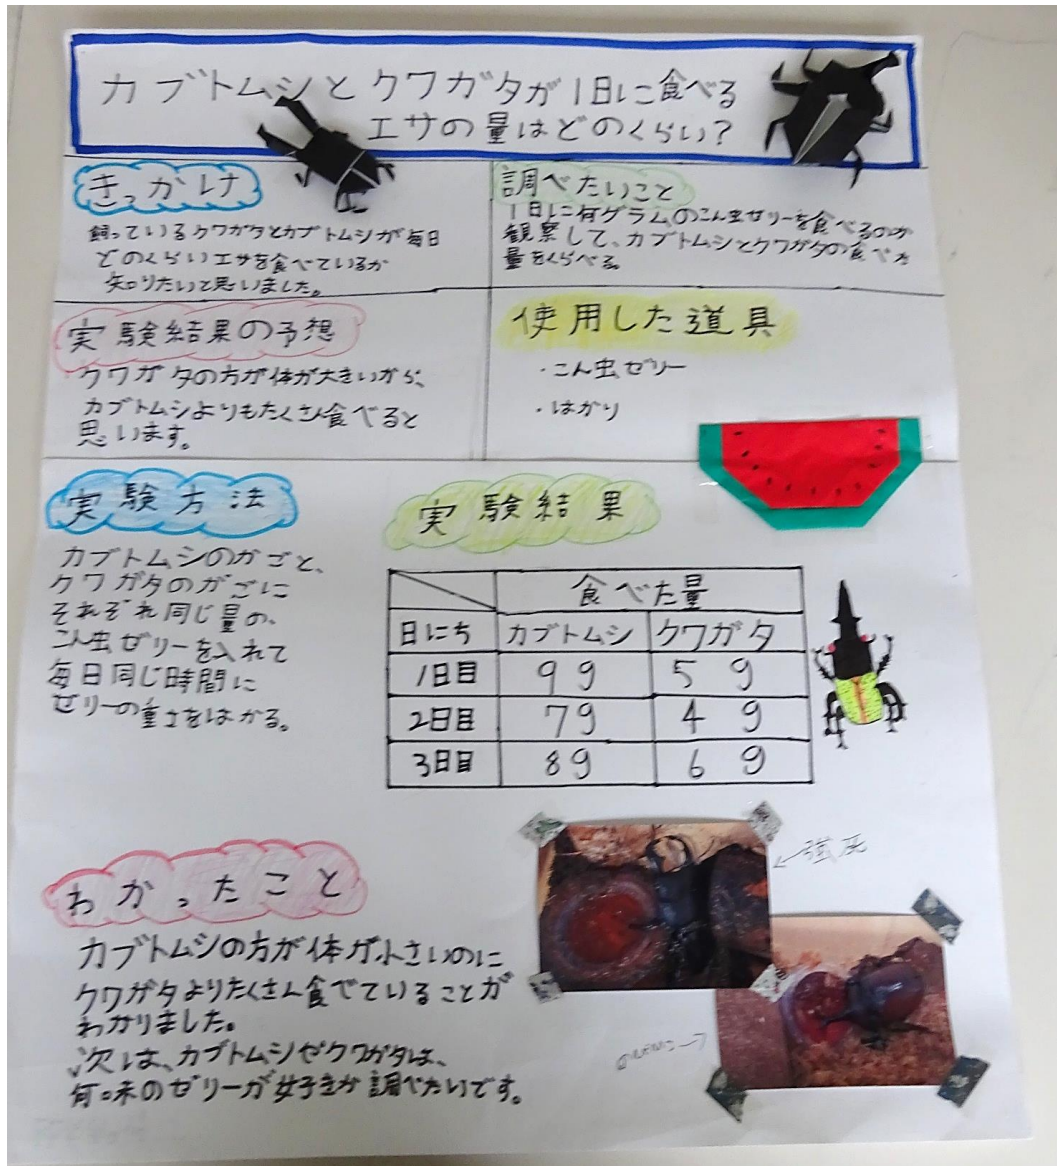 カブトムシとクワガタが1日に食べる
エサの量はどのくらい?
きっかけ
飼っているクワガタとカブトムシが毎日
どのくらいエサを食べているか
知りたいと思いました。
調べたいこと
1日に何グラムのこん虫ゼリーを食べるのか
観察して、カブトムシとクワガタの食べた
量をくらべる。
実験結果の予想
クワガタの方が体が大きいから、
カブトムシよりもたくさん食べると
思います。
使用した道具
・こん虫ゼリー
・はかり
実験方法
カブトムシのかごと、
クワガタのかごに
それぞれ同じ量の、
こん虫ゼリーを入れて
毎日同じ時間に
ゼリーの重さをはかる。
実験結果
食べた量
日にち カブトムシ クワガタ
1日目 9g 5g
2日目 7g 4g
3日目 8g 6g
わかったこと
カブトムシの方が体が小さいのに
クワガタよりたくさん食べていることが
わかりました。
次は、カブトムシやクワガタは、
何味のゼリーが好きか調べたいです。